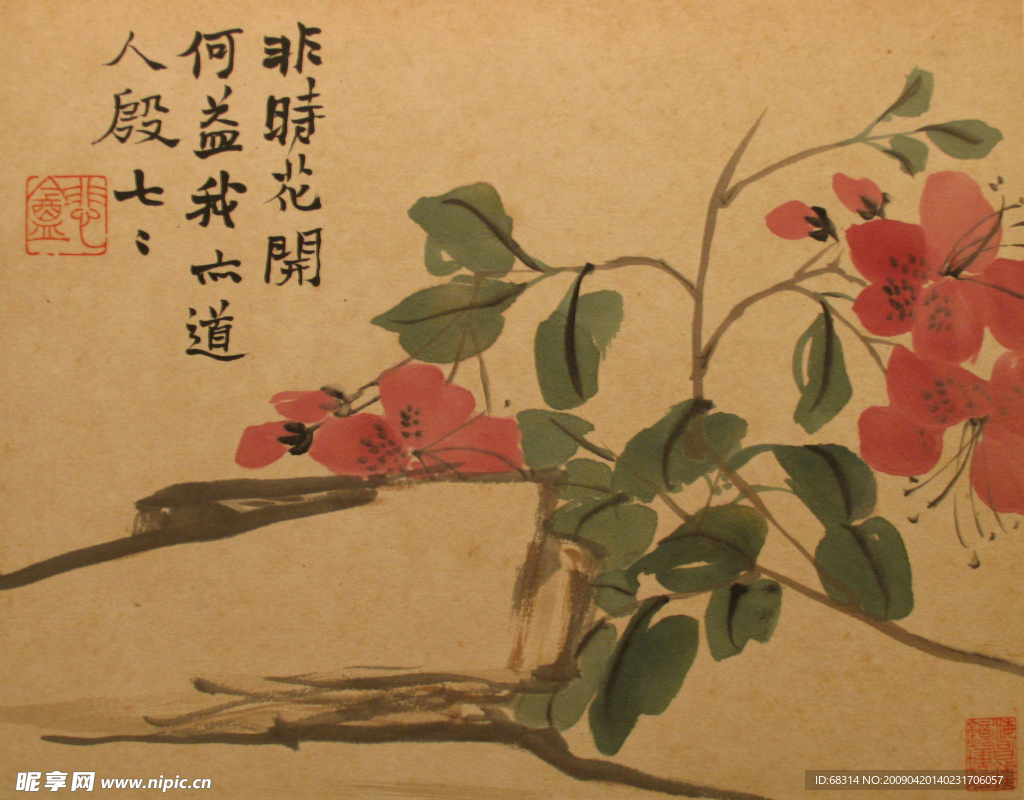 非時花開
何益我亦道
人殷七〻
悲盦
昵享网 www.nipic.cn
ID:68314 NO:20090420140231706057